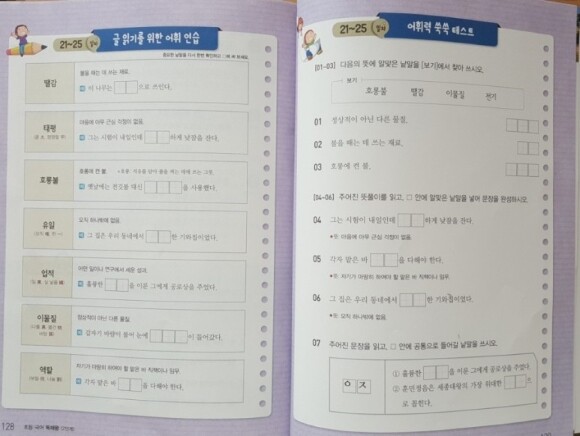 21~25 글 읽기를 위한 어휘 연습
땔감
불을 때는 데 쓰는 재료.
이 나무는 □□으로 쓰인다.
태평
마음에 아무 근심 걱정이 없음.
그는 시험이 내일인데 □□하게 낮잠을 잔다.
호롱불
호롱에 켠 불.
옛날에는 전깃불 대신 □□□을 사용했다.
유일
오직 하나밖에 없음.
그 집은 우리 동네에서 □□한 기와집이었다.
업적
어떤 일이나 연구에서 세운 성과.
훌륭한 □□을 이룬 그에게 공로상을 주었다.
이물질
정상적이 아닌 다른 물질.
갑자기 바람이 불어 눈에 □□□이 들어갔다.
역할
자기가 마땅히 하여야 할 맡은 바 직책이나 임무.
각자 맡은 바 □□을 다해야 한다.
128
21~25 어휘력 쑥쑥 테스트
[01~03] 다음의 뜻에 알맞은 낱말을 [보기]에서 찾아 쓰시오.
보기
호롱불 땔감 이물질
01 정상적이 아닌 다른 물질.
02 불을 때는 데 쓰는 재료.
03 호롱에 켠 불.
[04~06] 주어진 뜻풀이를 읽고, □ 안에 알맞은 낱말을 넣어 문장을 완성하시오.
04 그는 시험이 내일인데 □□하게 낮잠을 잔다.
뜻 마음에 아무 근심 걱정이 없음.
05 각자 맡은 바 □□을 다해야 한다.
뜻 자기가 마땅히 하여야 할 맡은 바 직책이나 임무.
06 그 집은 우리 동네에서 □□한 기와집이었다.
뜻 오직 하나밖에 없음.
07 주어진 문장을 읽고, □ 안에 공통으로 들어갈 낱말을 쓰시오.
ㅇㅈ
① 훌륭한 □□을 이룬 그에게 공로상을 주었다.
② 훈민정음은 세종대왕의 가장 위대한 □□으
로 꼽힌다.